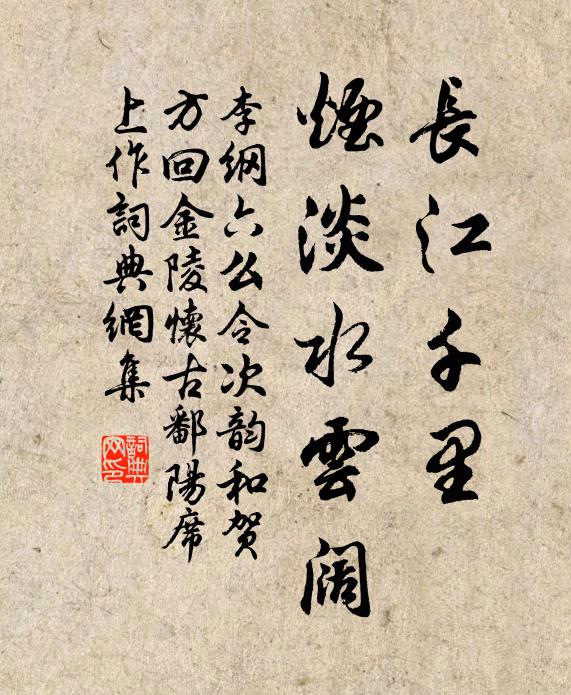 長江千里
煙淡水雲阔
李纲六么令次韵和贺
方回金陵懷古鄱陽席
上作詞典網集
詞典
网印